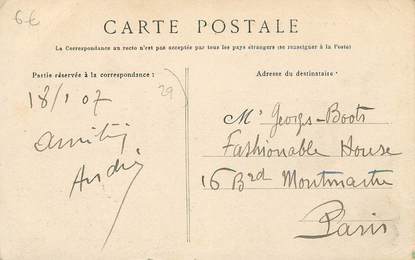 6€
CARTE POSTALE
La Correspondance au recto n'est pas acceptée par tous les pays étrangers (se renseigner à la Poste)
Partie réservée à la correspondance:
Adresse du destinataire.
18/1 07
29
amitiés
André
Mr Georges-Boots
Fashionable House
16 Bred Montmartre
Paris